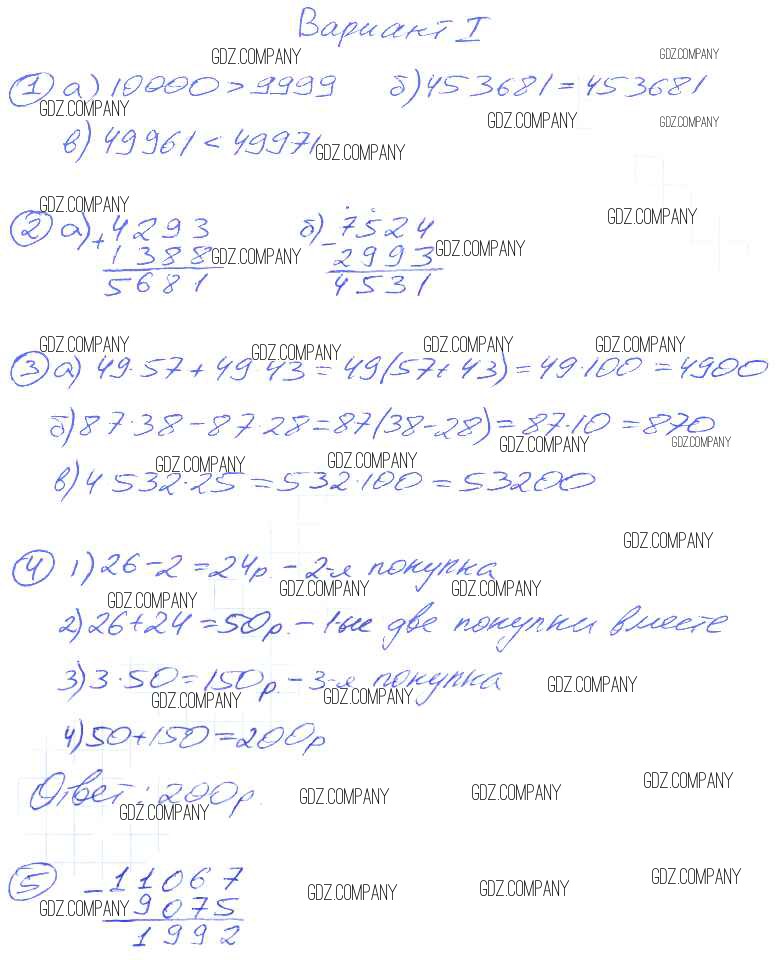 Вариант I
GDZ.COMPANY GDZ.COMPANY
1 а) 10000 > 9999 б) 453681 = 453681
GDZ.COMPANY GDZ.COMPANY GDZ.COMPANY
в) 49961 < 49971 GDZ.COMPANY
GDZ.COMPANY GDZ.COMPANY
2 а) + 4293 б) - 7524
1388 GDZ.COMPANY 2993 GDZ.COMPANY
5681 4531
GDZ.COMPANY GDZ.COMPANY GDZ.COMPANY GDZ.COMPANY
3 а) 49·57 + 49·43 = 49(57+43) = 49·100 = 4900
б) 87·38 - 87·28 = 87(38-28) = 87·10 = 870
GDZ.COMPANY GDZ.COMPANY
GDZ.COMPANY GDZ.COMPANY
в) 4 532·25 = 532·100 = 53200
GDZ.COMPANY
4 1) 26 - 2 = 24р. - 2-я покупка
GDZ.COMPANY GDZ.COMPANY GDZ.COMPANY
2) 26 + 24 = 50р. - 1-ые две покупки вместе
3) 3·50 = 150р. - 3-я покупка
GDZ.COMPANY GDZ.COMPANY GDZ.COMPANY
4) 50 + 150 = 200р
Ответ: 200р.
GDZ.COMPANY GDZ.COMPANY GDZ.COMPANY GDZ.COMPANY
5 - 11067
GDZ.COMPANY 9075 GDZ.COMPANY GDZ.COMPANY GDZ.COMPANY
1992